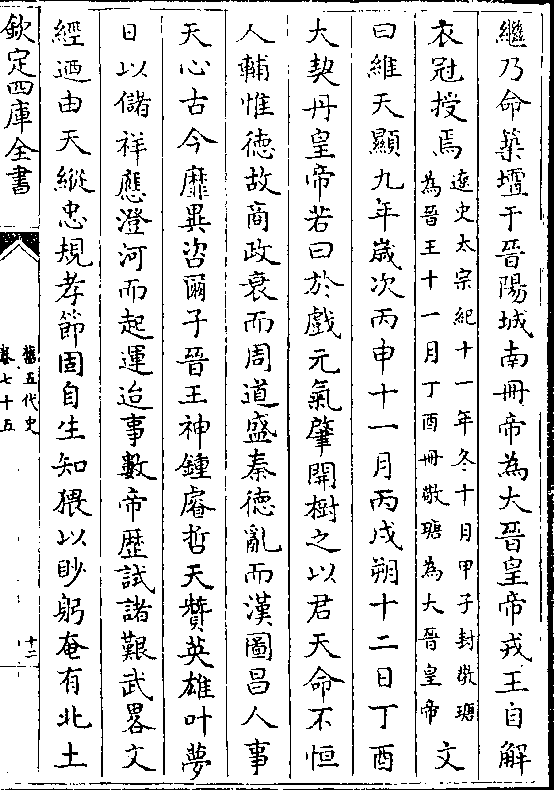 繼乃命築壇于晉陽城南冊帝為大晉皇帝戎王自解
衣冠授焉
遼史太宗紀十一年冬十月甲子封敬瑭
為晉王十一月丁酉冊敬瑭為大晉皇帝
文
曰維天顯九年歲次丙申十一月丙戌朔十二日丁酉
大契丹皇帝若曰於戲元氣肇開樹之以君天命不恒
人輔惟德故商政衰而周道盛秦德亂而漢圖昌人事
天心古今靡異咨爾子晉王神鍾睿哲天贊英雄叶夢
日以儲祥應澄河而起運迨事數帝歷試諸艱武畧文
經廼由天縱忠規孝節固自生知猥以眇躬奄有北土
欽定四庫全書
舊五代史
卷七十五
十二